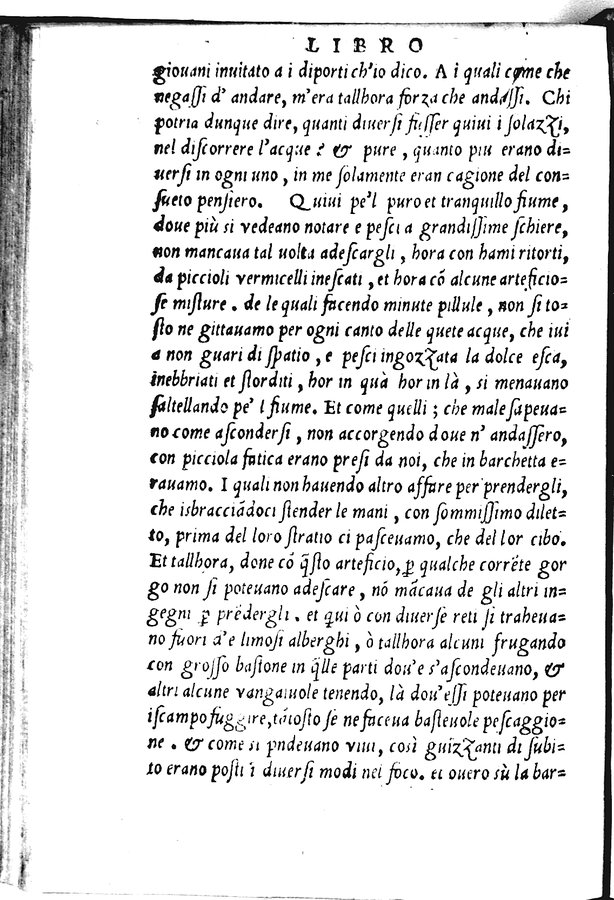 LIBRO
giouani inuitato a i diporti ch'io dico. A i quali come che
negaſſi d' andare, m'era tallhora forza che andaſſi. Chi
potria dunque dire, quanti diuerſi fuſſer quiui i ſolazzi,
nel diſcorrere l'acque? & pure, quanto piu erano di=
uerſi in ogni uno, in me ſolamente eran cagione del con=
ſueto penſiero. Quiui pe'l puro et tranquillo fiume,
doue più si vedeano notare e peſci a grandiſſime ſchiere,
non mancaua tal uolta adeſcargli, hora con hami ritorti,
da piccioli vermicelli ineſcati, et hora cō alcune arteficio=
ſe miſture. de le quali facendo minute pillule, non ſi to=
ſto ne gittauamo per ogni canto delle quete acque, che iui
a non guari di ſpatio, e peſci ingozzata la dolce eſca,
inebbriati et ſtorditi, hor in quà hor in là, si menauano
ſaltellando pe' l fiume. Et come quelli; che male ſapeua=
no come aſconderſi, non accorgendo doue n' andaſſero,
con picciola fatica erano preſi da noi, che in barchetta e=
rauamo. I quali non hauendo altro affare per prendergli,
che isbracciādoci ſtender le mani, con ſommiſſimo dilet=
to, prima del loro ſtratio ci paſceuamo, che del lor cibo.
Et tallhora, doue cō q̃ſto arteficio, ꝑ qualche corrēte gor
go non ſi poteuano adeſcare, nō mācaua de gli altri in=
gegni ꝑ prēdergli. et qui ò con diuerſe reti ſi traheua=
no fuori d'e limoſi alberghi, ò tallhora alcuni frugando
con groſſo baſtone in q̃lle parti dou'e s'aſcondeuano, &
altri alcune vangaiuole tenendo, là dou'eſſi poteuano per
iſcampo fuggire, tātoſto ſe ne faceua baſteuole peſcaggio=
ne. & come si p̃ndeuano viui, così guizzanti di ſubi=
to erano poſti ī diuerſi modi nel foco. et ouero sù la bar=